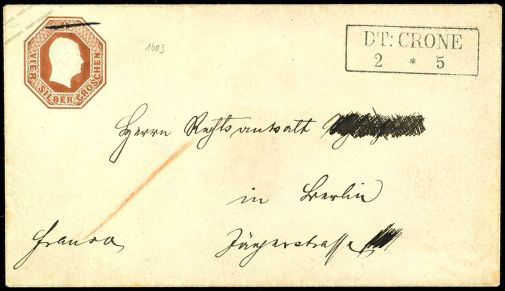 VIER SILBER GROSCHEN
1603
DT: CRONE
2 * 5
Herrn Rechtsanwalt
in Berlin
franco Jägerstrasse